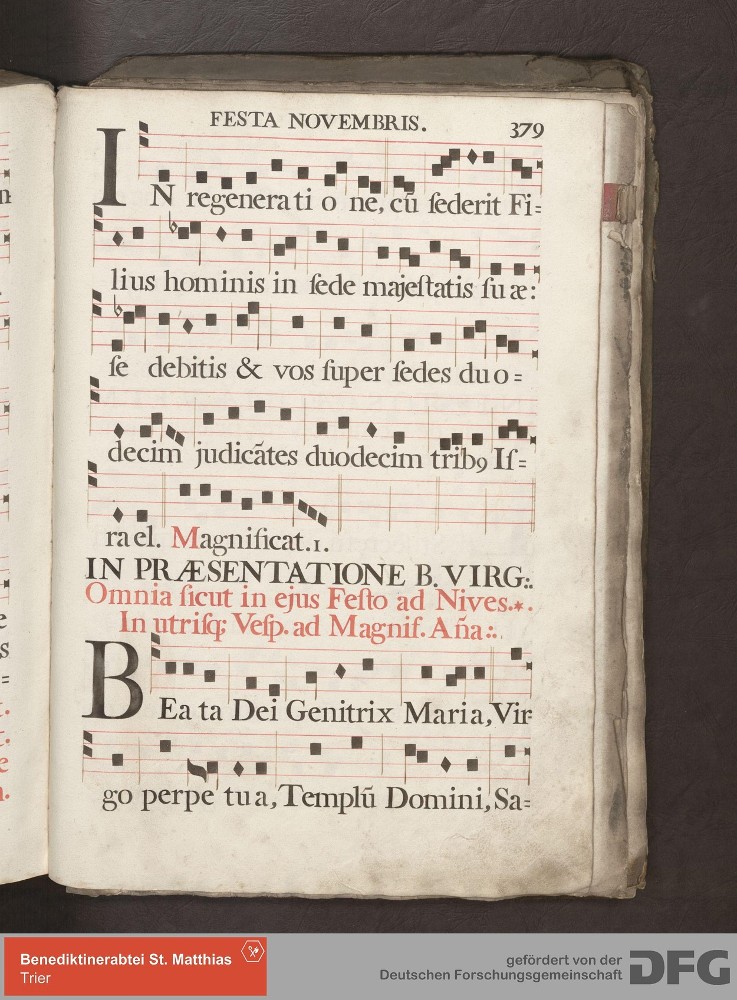 FESTA NOVEMBRIS. 379
IN regenerati o ne, cū ſederit Fi=
lius hominis in ſede majeſtatis ſu æ:
ſe debitis & vos ſuper ſedes du o =
decim judicãtes duodecim tribꝯ Iſ=
ra el. Magnificat.1.
IN PRÆSENTATIONE B. VIRG:.
Omnia ſicut in ejus Feſto ad Nives.*.
In utriſq; Veſp. ad Magnif. Aña:.
BEa ta Dei Genitrix Maria, Vir=
go perpe tu a, Templū Domini, Sa=
Benediktinerabtei St. Matthias
Trier
gefördert von der
Deutschen Forschungsgemeinschaft
DFG